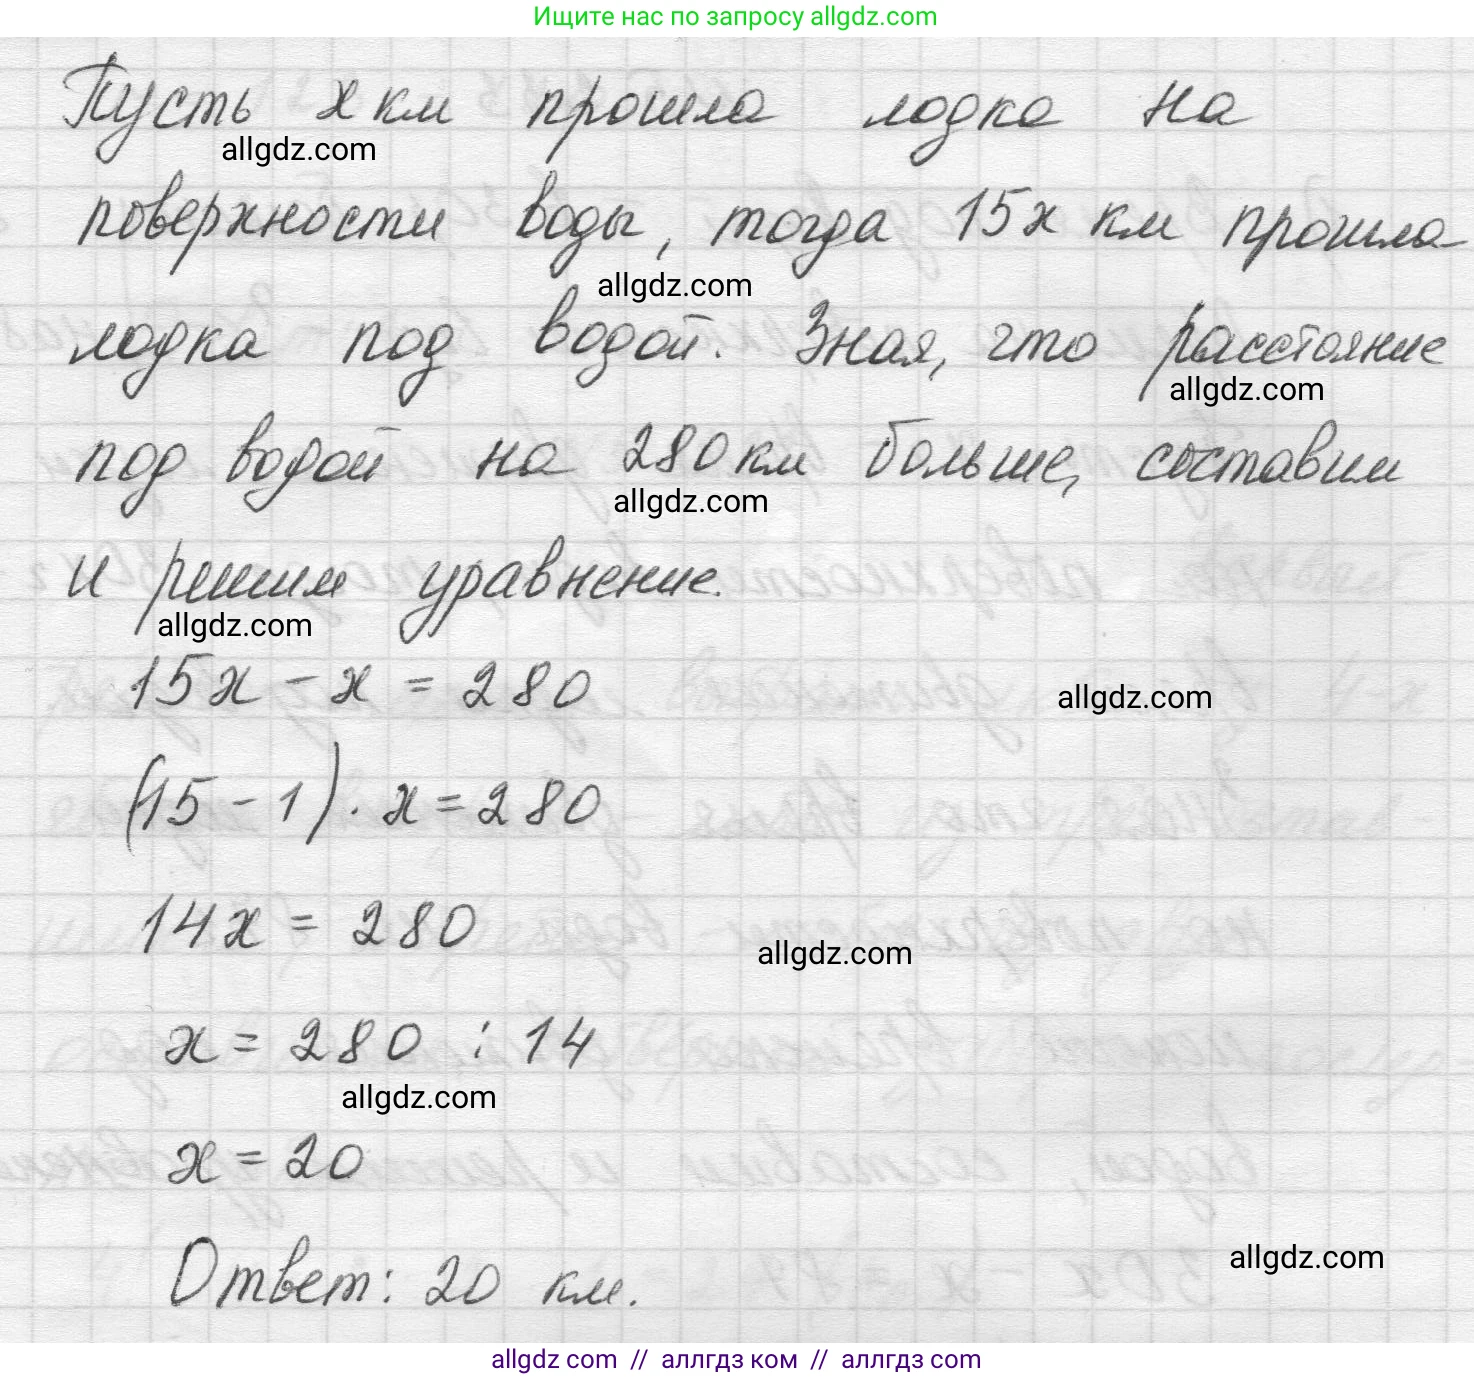 Ищите нас по запросу allgdz.com
Пусть x км прошла лодка на
allgdz.com
поверхности воды, тогда 15x км прошла
allgdz.com
лодка под водой. Зная, что расстояние
allgdz.com
под водой на 280 км больше, составим
allgdz.com
и решим уравнение.
allgdz.com
15x - x = 280
allgdz.com
(15 - 1) · x = 280
14x = 280
allgdz.com
x = 280 : 14
allgdz.com
x = 20
allgdz.com
Ответ: 20 км.
allgdz.com // аллгдз ком // аллгдз com